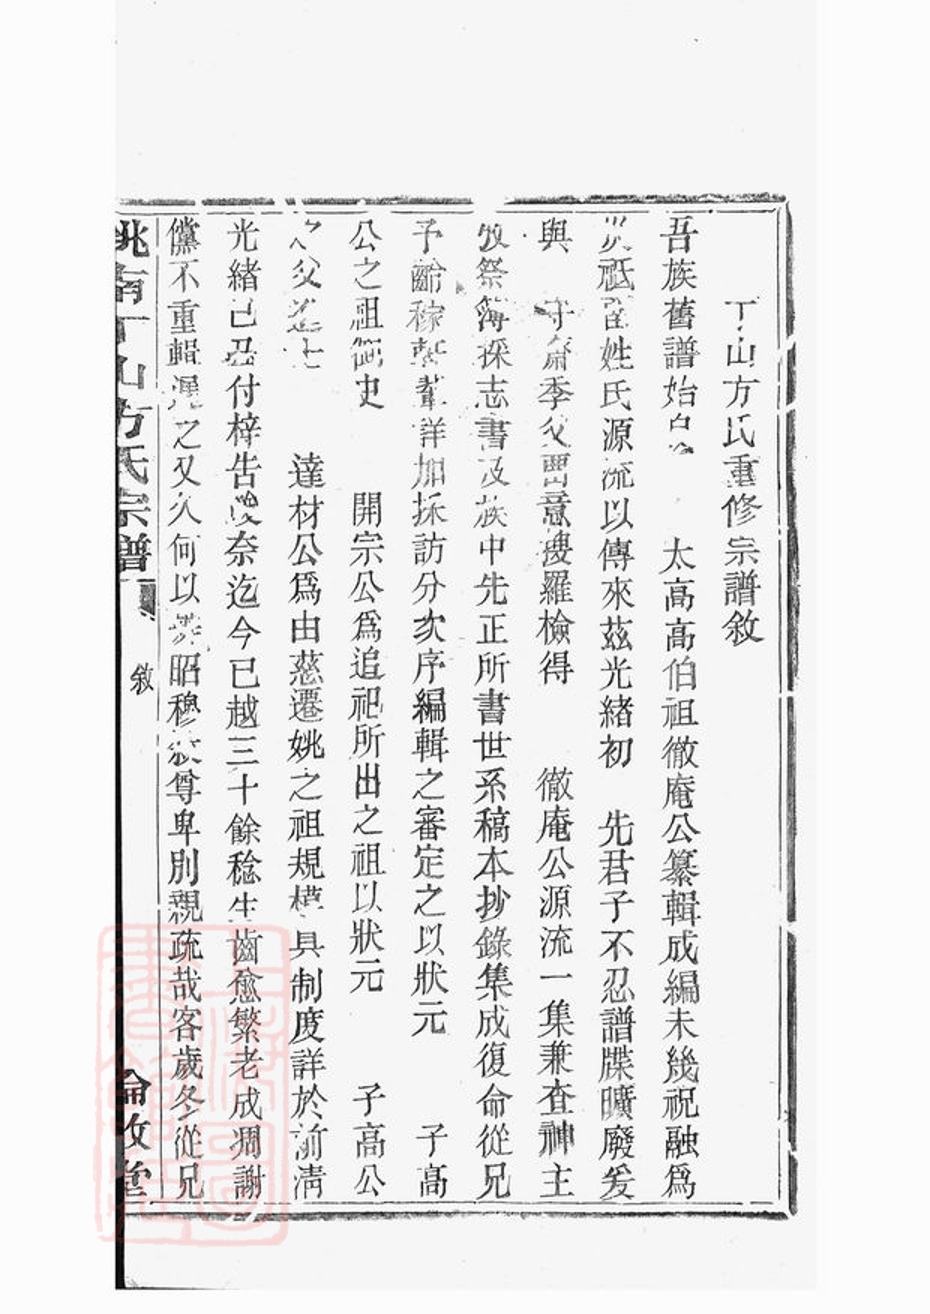 丁山方氏重修宗譜敘
吾族舊譜始自 太高高伯祖徹庵公纂輯成編未幾祝融為
災祗留姓氏源流以傳來茲光緒初 先君子不忍譜牒曠廢爰
與 守齋季父賈意搜羅檢得 徹庵公源流一集兼查神主
牧祭簿採志書及族中先正所書世系稿本抄錄集成復命從兄
予齡稼軒輩詳加採訪分次序編輯之審定之以狀元 子高
公之祖御史 開宗公為追祀所出之祖以狀元 子高公
之父進士 達材公為由慈遷姚之祖規模具制度詳於前清
光緒己丑付梓告竣奈迄今已越三十餘稔生齒愈繁老成凋謝
儻不重輯漏之又久何以 昭穆敘尊卑別親疏哉客歲冬從兄
姚南丁山方氏宗譜 敘 倫敘堂